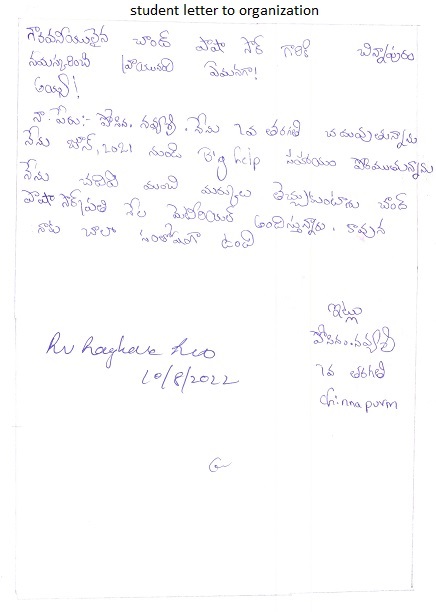 student letter to organization
గౌరవనీయులైన చాంద్ పాషా సార్ గారికి చిన్నాపురం
నమస్కరించి వ్రాయునది ఏమనగా!
అయ్యా!
నా పేరు:- పోసిన. నవ్యశ్రీ. నేను 7వ తరగతి చదువుతున్నాను
నేను జూన్, 2021 నుండి Big help సహాయం పొందుతున్నాను
నేను చదివి మంచి మార్కులు తెచ్చుకుంటాను చాంద్
పాషా సార్ ప్రతి నెల మెటీరియల్ అందిస్తున్నారు. కావున
నాకు చాలా సంతోషంగా ఉంది
ఇట్లు
పోసిన. నవ్యశ్రీ
7వ తరగతి
chinnapurm
Rv Raghava Rao
10/8/2022